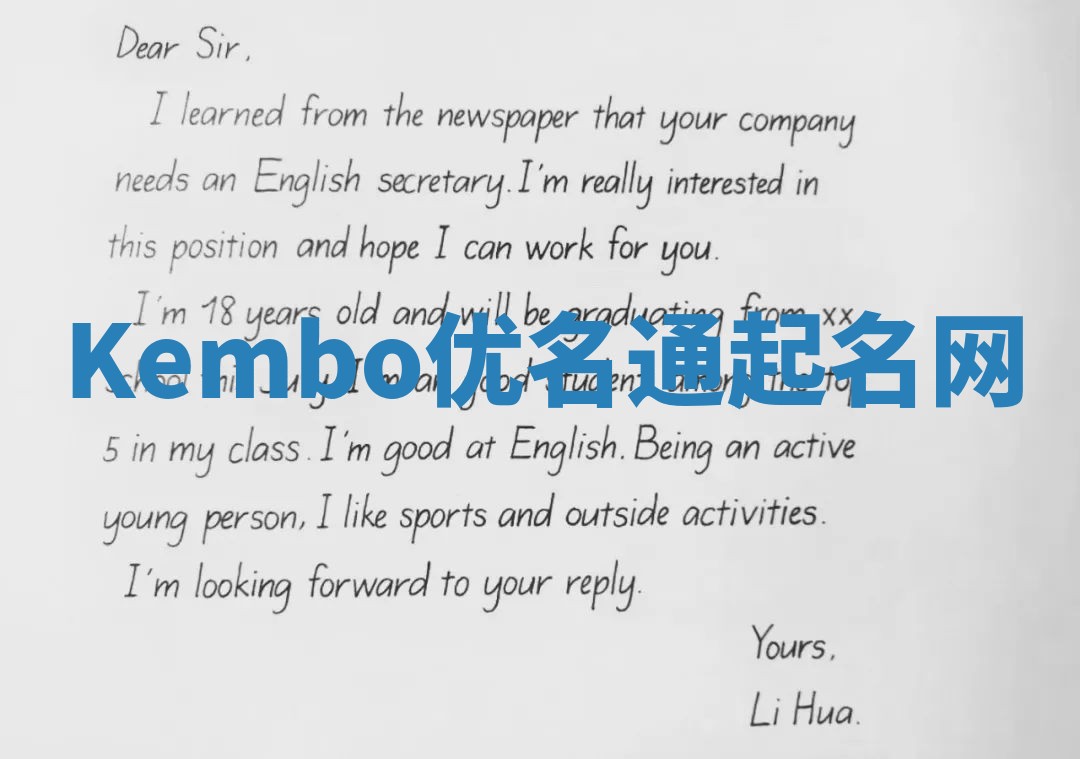 Dear Sir,
I learned from the newspaper that your company
needs an English secretary. I'm really interested in
this position and hope I can work for you.
I'm 18 years old and will be graduating from xx
Kembo优名通起名网
school this July. I'm a good student among the top
5 in my class. I'm good at English. Being an active
young person, I like sports and outside activities.
I'm looking forward to your reply.
Yours,
Li Hua.